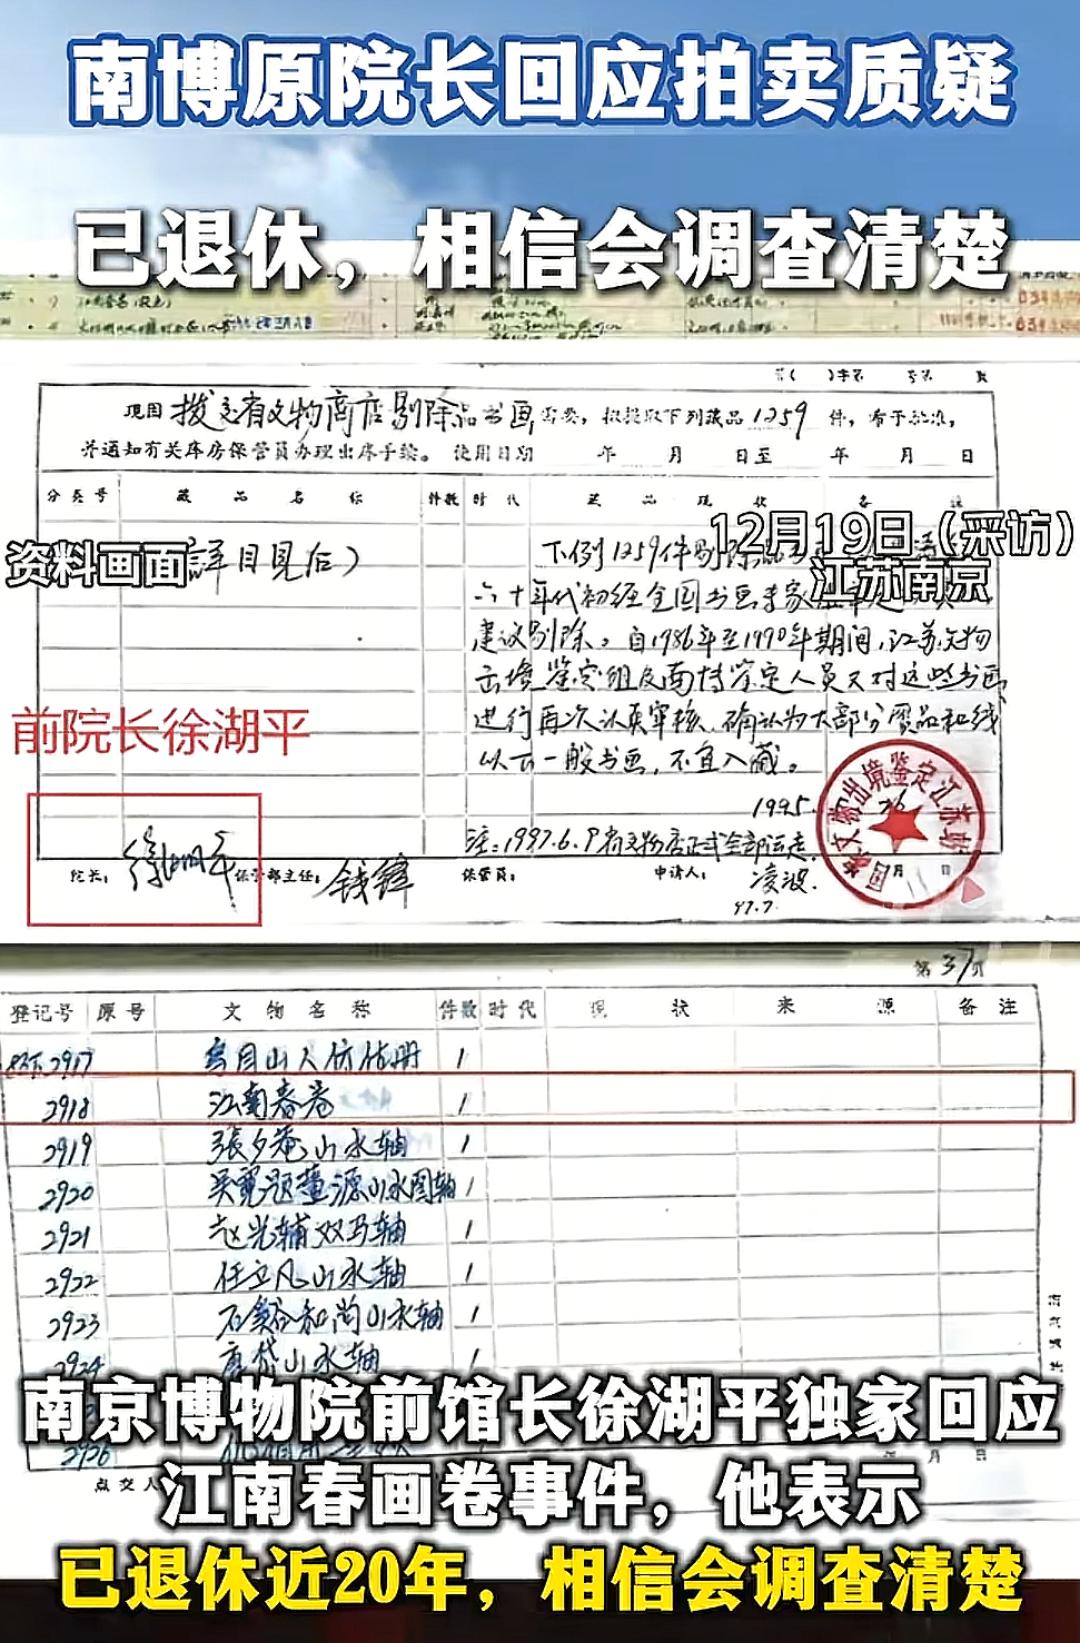 南博原院长回应拍卖质疑
已退休，相信会调查清楚
字第 号第 页
现因拨交省文物商店剔除品书画需要，拟提取下列藏品1259件，希予批准，
并通知有关库房保管员办理出库手续。使用日期 年 月 日至 年 月 日
分类号 藏品名称 件数 时代 藏品现状 备注
12月19日（采访）
江苏南京
资料画面
詳目見后）
下列1259件剔除品
六十年代初经全国书画专家
建议剔除。自1986年至1990年期间，江苏文物
出境鉴定组及南博鉴定人员又对这些书画
进行再次认真审核，确认为大部分赝品和线
以下一般书画，不宜入藏。
1995.
注：1997.6.9省文物店正式全部运走.
前院长徐湖平
院长：徐湖平 保管部主任：钱锋 保管员： 申请人：凌波.
97.7.
国家文物出境鉴定江苏站
月 日
第37页
登记号 原号 文物名称 件数 时代 现状 来源 备注
2917 乌目山人仿 册 1
2918 江南春卷 1
2919 張夕菴山水轴 1
2920 吴寬题董源山水图轴 1
2921 赵光辅双马轴 1
2922 任立凡山水轴 1
2923 石谿和尚山水轴 1
2924 唐岱山水轴 1
南京博物院前馆长徐湖平独家回应
2926
月 日
点交人
江南春画卷事件，他表示
已退休近20年，相信会调查清楚